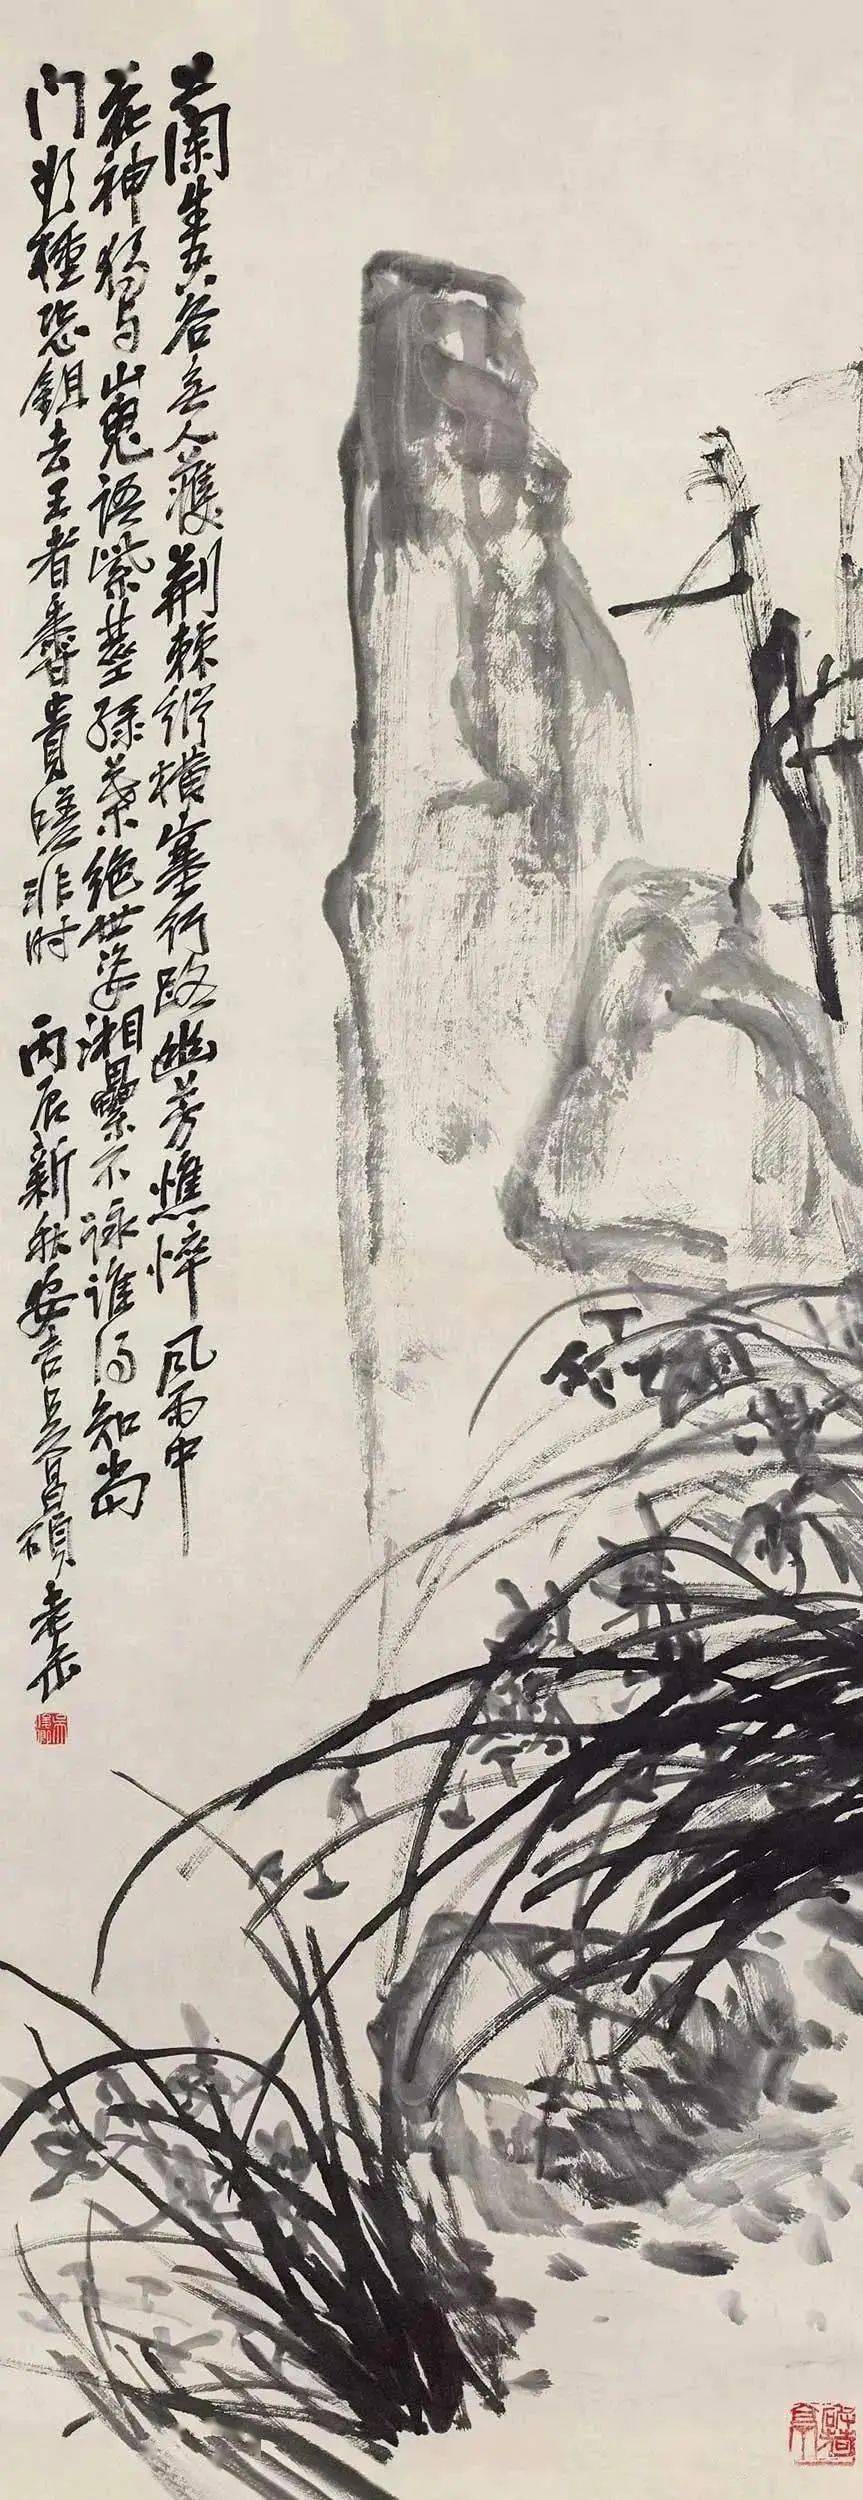 蘭生空谷無人護荆棘縱橫塞行路幽芳憔悴風雨中
花神猶与山鬼語紫莖綠葉絕世姿湘纍不詠誰得知當
門欲種恐鉏去王者香貴嗟非时 丙辰新秋安吉吳昌碩老缶